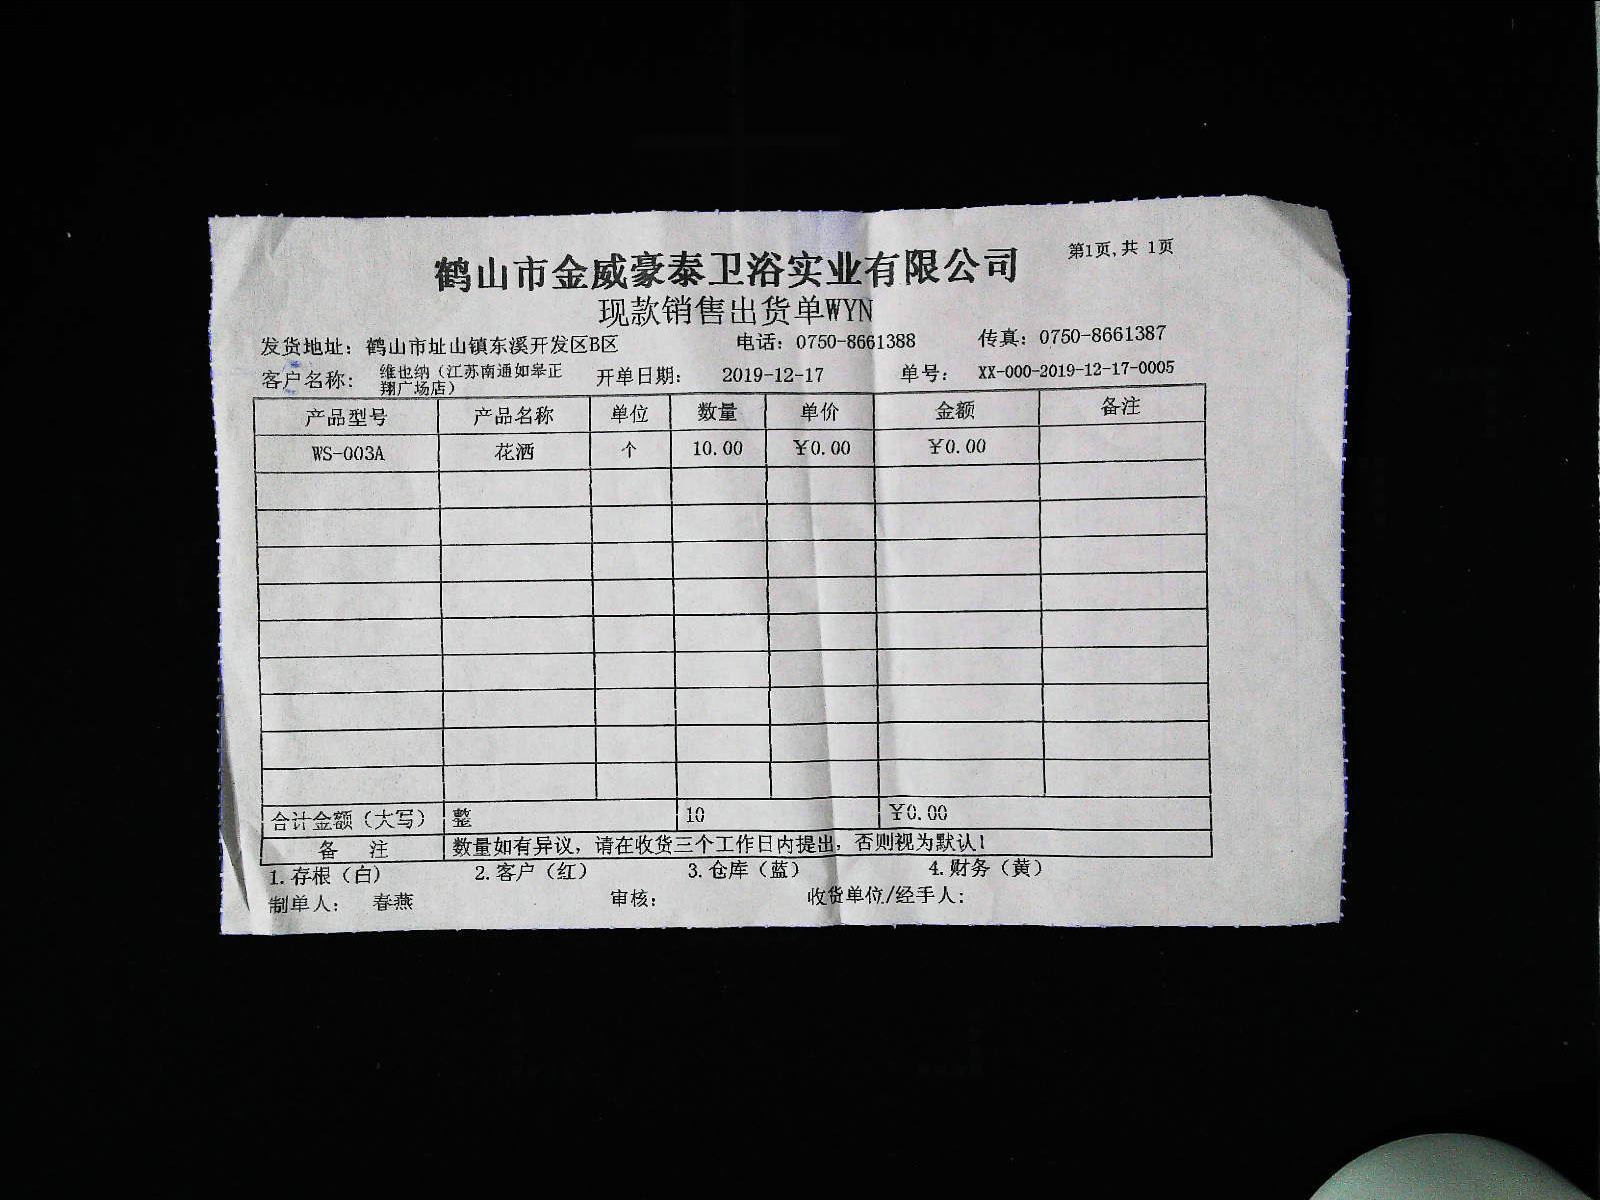 鹤山市金威豪泰卫浴实业有限公司 第1页,共 1页
现款销售出货单WYN
发货地址：鹤山市址山镇东溪开发区B区 电话：0750-8661388 传真：0750-8661387
客户名称：维也纳（江苏南通如皋正翔广场店） 开单日期：2019-12-17 单号：XX-000-2019-12-17-0005
产品型号 产品名称 单位 数量 单价 金额 备注
WS-003A 花洒 个 10.00 ¥0.00 ¥0.00
合计金额（大写） 整 10 ¥0.00
备 注 数量如有异议，请在收货三个工作日内提出，否则视为默认！
1.存根（白） 2.客户（红） 3.仓库（蓝） 4.财务（黄）
制单人： 春燕 审核： 收货单位/经手人：